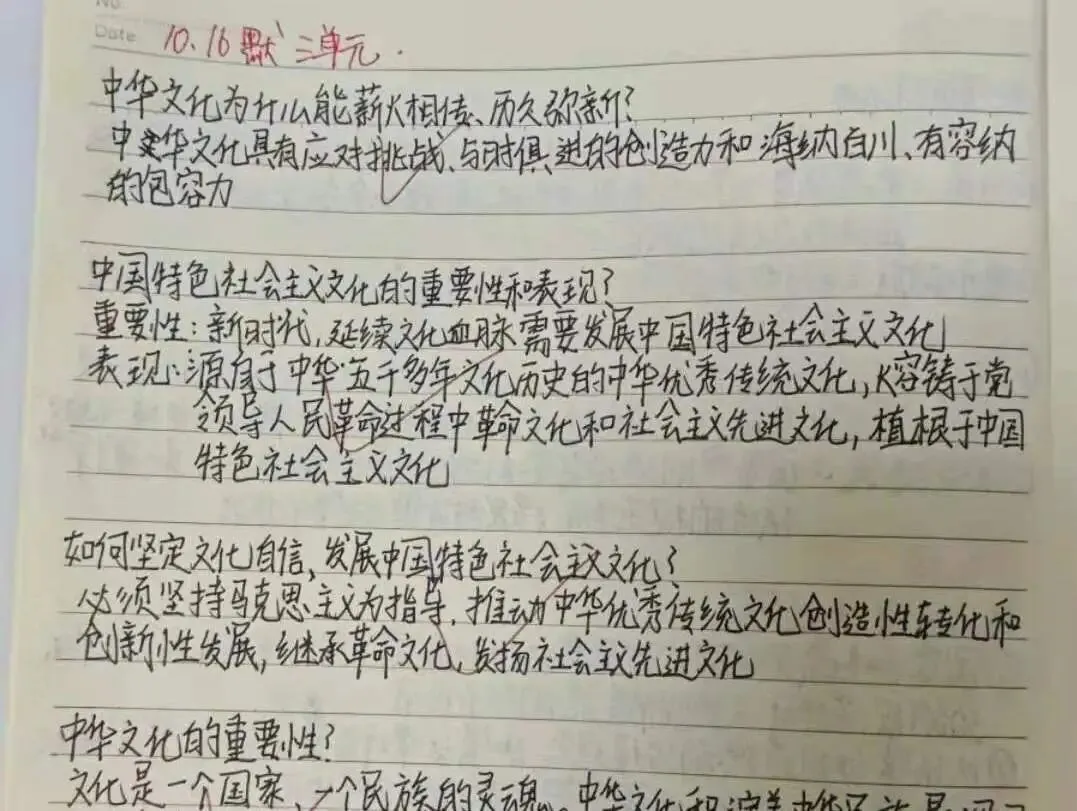 No.
Date 10.16 默 三单元.
中华文化为什么能薪火相传、历久弥新?
中华文化具有应对挑战、与时俱进的创造力和海纳百川、有容纳
的包容力
中国特色社会主义文化的重要性和表现?
重要性:新时代,延续文化血脉需要发展中国特色社会主义文化
表现:源自于中华五千多年文化历史的中华优秀传统文化,容铸于党
领导人民革命过程中革命文化和社会主义先进文化,植根于中国
特色社会主义文化
如何坚定文化自信,发展中国特色社会主义文化?
必须坚持马克思主义为指导,推动中华优秀传统文化创造性转化和
创新性发展,继承革命文化,发扬社会主义先进文化
中华文化的重要性?
文化是一个国家、一个民族的灵魂。中华文化和